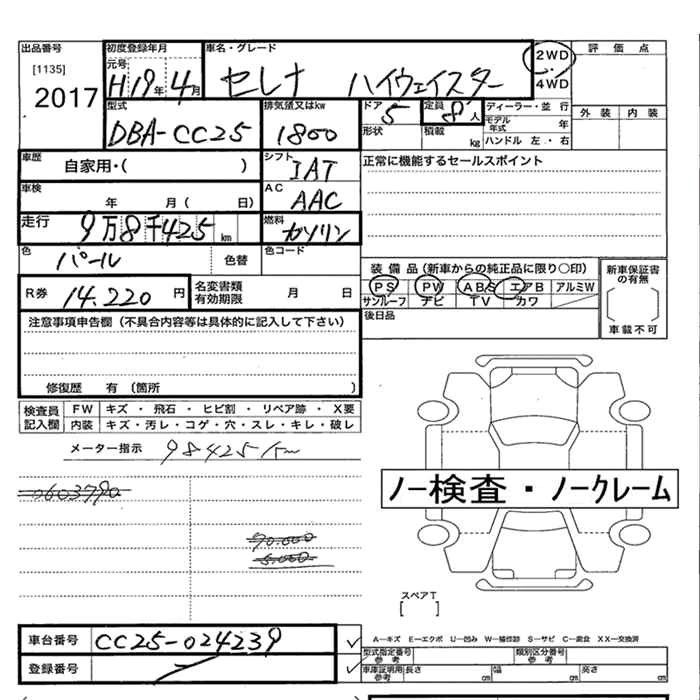 出品番号 初度登録年月 車名・グレード 評価点
[1135] 元号 2WD
2017 H19年4月 セレナ ハイウェイスター 4WD
型式 排気量又はkw ドア 定員 ディーラー・並 行 外装 内装
DBA-CC25 1800 5 8人 モデル年式 年
形状 積載 kg ハンドル 左・右
車歴 自家用・( ) シフト IAT 正常に機能するセールスポイント
車検 年 月( 日) AC AAC
走行 9万8千425km 燃料 ガソリン
色 パール 色替 色コード 装備品(新車からの純正品に限り○印) 新車保証書の有無
R券 14.220円 名変書類有効期限 月 日 PS PW ABS エアB アルミW
サンルーフ ナビ TV カワ
後日品 車載不可
注意事項申告欄(不具合内容等は具体的に記入して下さい)
修復歴 有(箇所 )
検査員記入欄 FW キズ・飛石・ヒビ割・リペア跡・X要
内装 キズ・汚レ・コゲ・穴・スレ・キレ・破レ
メーター指示 98425km
ノー検査・ノークレーム
90.000
5.000
スペアT
[ ]
車台番号 CC25-024239 A−キズ E−エクボ U−凹み W−補修跡 S−サビ C−腐食 XX−交換済
登録番号 型式指定番号参考 類別区分番号参考
車庫証明用参考 長さ cm 幅 cm 高さ cm